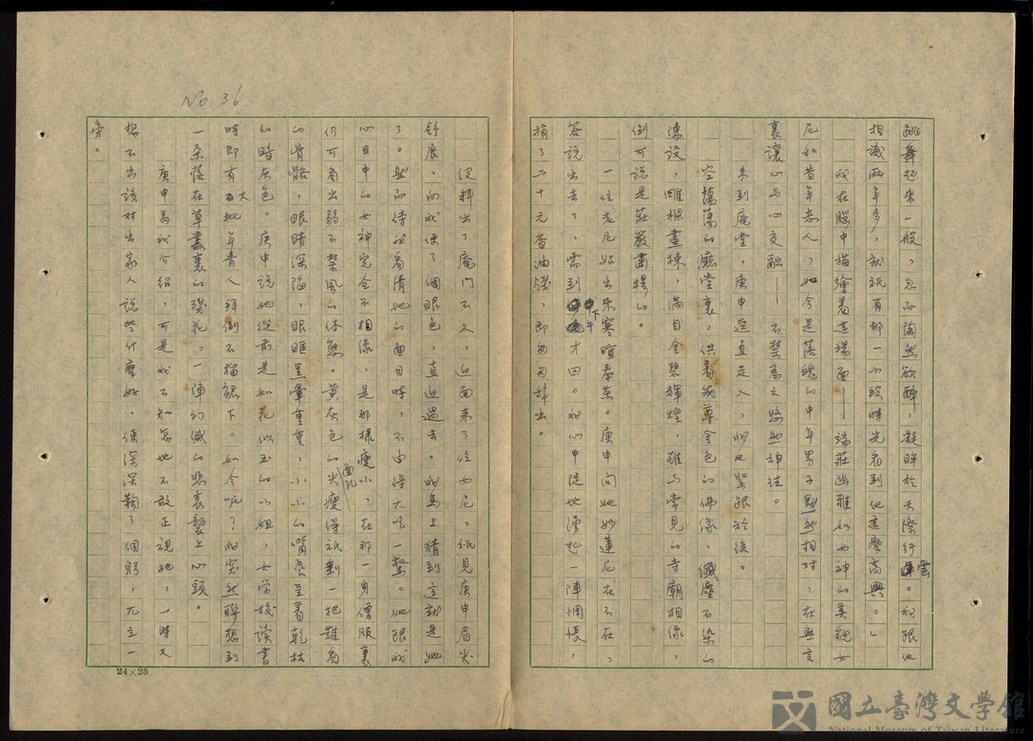 跳舞起來一般，忽而陶然欲醉，凝眸於天際行雲。我跟他
相識兩年多，就祇有那一小段時光看到他這麼高興。」
我在腦中描繪着這場面——端莊幽雅如女神的美貌女
尼和昔年意人，如今是落魄的中年男子默然相對，在無言
裏讓心与心交融——不禁為之悠然神往。
來到庵堂，庚申逕直走入，我也緊跟於後。
空蕩蕩的廳堂裏，供着幾尊金色的佛像，纖塵不染的
陳設，雕樑畫棟，滿目金碧輝煌，雖与常見的寺廟相像，
倒可說是莊嚴肅穆的。
一位老尼姑出來寒暄奉茶。庚申問她妙蓮尼在不在，
答說出去了，需到下午才回。我心中陡地湧起一陣惆悵，
捐了二十元香油錢，即匆匆辭出。
從轉出了庵門不久，迎面來了位女尼，祇見庚申眉尖
舒展，向我使了個眼色，直迎過去。我馬上猜到這就是她
了。然而待我看清她的面目時，不由得大吃一驚。她跟我
心目中的女神完全不相像，是那樣瘦小，在那一身僧服裏
仍可看出弱不禁風的体態。黃灰色的面孔尖瘦得祇剩一把難看
的骨骼，眼睛深陷，眼眶黑暈重重，小小的嘴唇呈着乾枯
的暗灰色。庚申說她從前是如花似玉的小姐，女学校讀書
時即有大批年青人拜倒石榴裙下。如今呢？我突然聯想到
一朵落在草叢裏的殘花，一陣幻滅的悲哀襲上心頭。
庚申為我介紹，可是我不知怎地不敢正視她，一時又
想不出該對出家人說些什麼好，便深深鞠了個躬，兀立一
旁。
No. 36
24×25
國立臺灣文學館
National Museum of Taiwan Literature